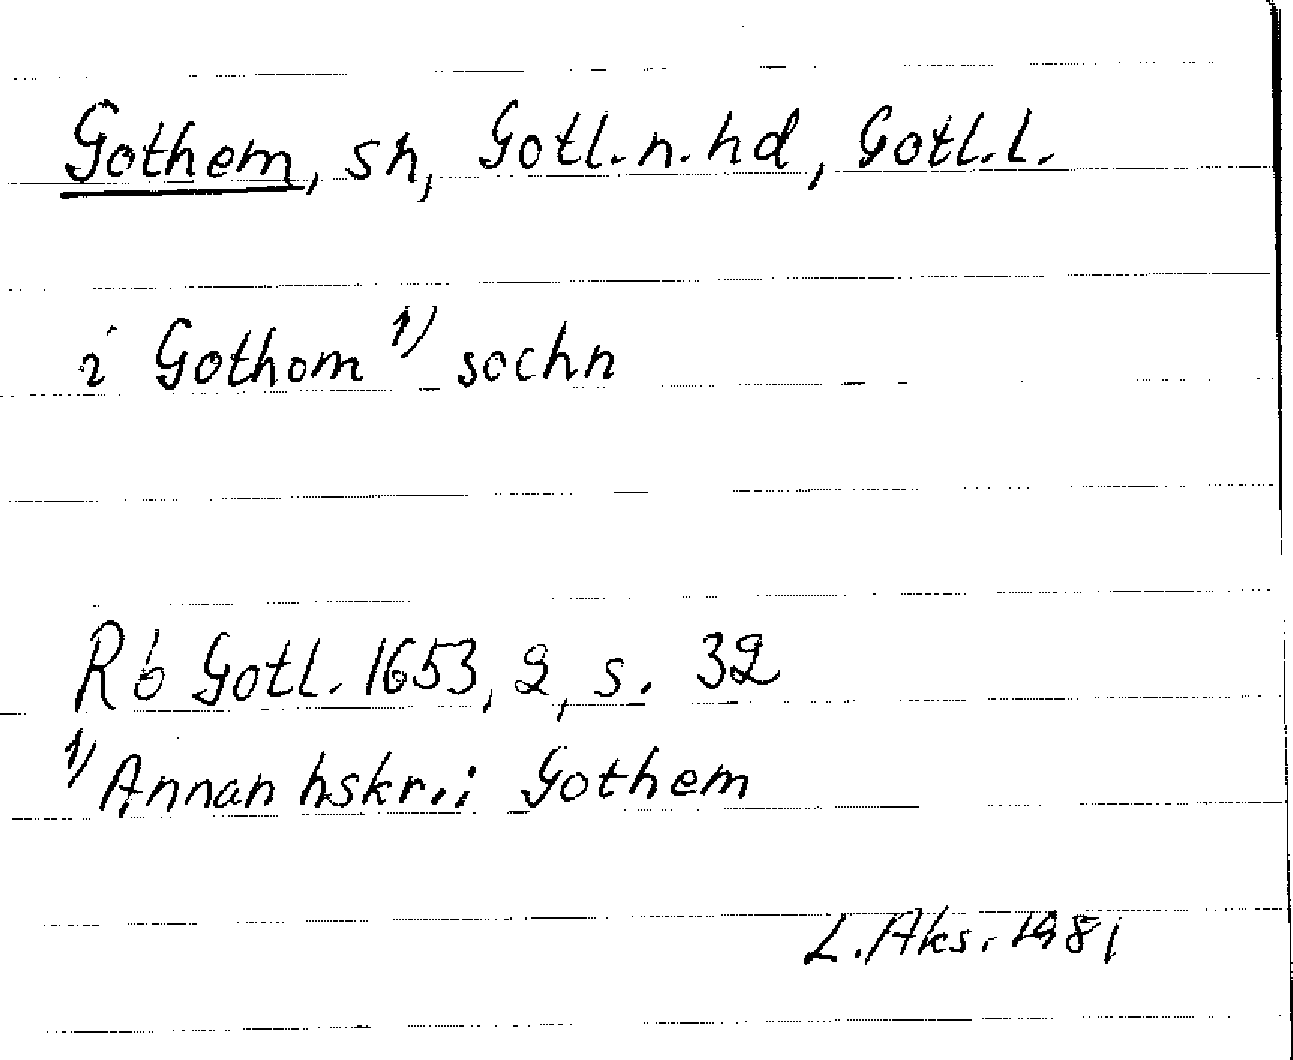 Gothem, sn, Gotl.n.hd, Gotl.l.
i Gothom 1) sochn
Rb Gotl. 1653, 2, s. 32
1) Annan hskr.: Gothem
L. Aks. 1981